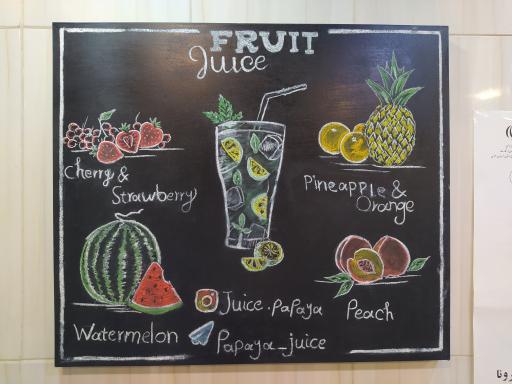 FRUIT
Juice
Cherry &
Strawberry
Pineapple &
Orange
Watermelon
Peach
Juice.papaya
Papaya_juice